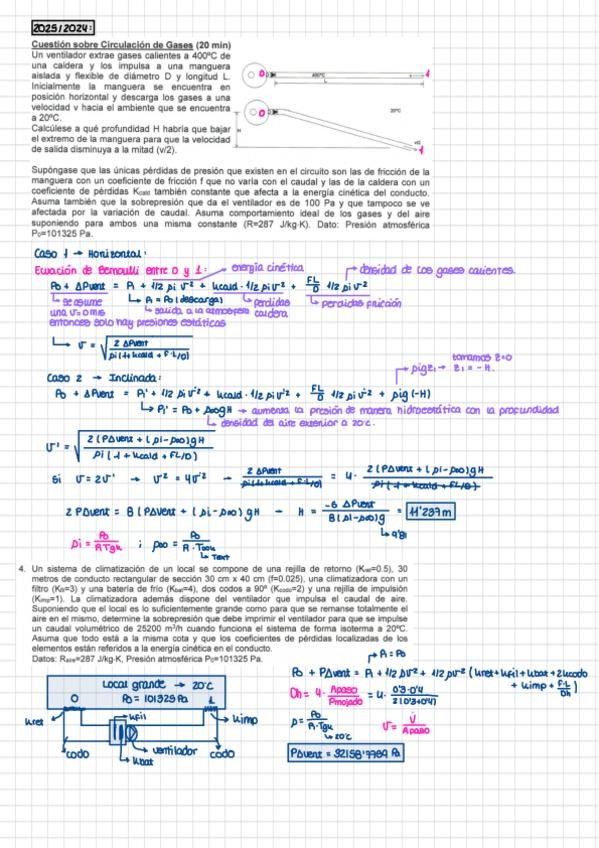 2025/2024:
Cuestión sobre Circulación de Gases (20 min)
Un ventilador extrae gases calientes a 400ºC de
una caldera y los impulsa a una manguera
aislada y flexible de diámetro D y longitud L.
Inicialmente la manguera se encuentra en
posición horizontal y descarga los gases a una
velocidad v hacia el ambiente que se encuentra
a 20ºC.
Calcúlese a qué profundidad H habría que bajar
el extremo de la manguera para que la velocidad
de salida disminuya a la mitad (v/2).
0 400ºC 1
L
0 20ºC
H
v/2
1
Supóngase que las únicas pérdidas de presión que existen en el circuito son las de fricción de la
manguera con un coeficiente de fricción f que no varía con el caudal y las de la caldera con un
coeficiente de pérdidas Kcald también constante que afecta a la energía cinética del conducto.
Asuma también que la sobrepresión que da el ventilador es de 100 Pa y que tampoco se ve
afectada por la variación de caudal. Asuma comportamiento ideal de los gases y del aire
suponiendo para ambos una misma constante (R=287 J/kg·K). Dato: Presión atmosférica
P0=101325 Pa.
Caso 1 → Horizontal:
Ecuación de Bernoulli entre 0 y 1: energía cinética densidad de los gases calientes.
P0 + ΔPvent = P1 + 1/2 ρi v² + Kcald · 1/2 ρi v² + FL/D 1/2 ρi v²
se asume P1 = P0 (descarga) perdidas perdidas fricción
una v=0 m/s salida a la atmosfera caldera
entonces solo hay presiones estáticas
v = √(2 ΔPvent / ρi(1+Kcald + F·L/D))
tomamos z=0
Caso 2 → Inclinada: ρi g z1 → z1 = -H.
P0 + ΔPvent = P1' + 1/2 ρi v'² + Kcald · 1/2 ρi v'² + FL/D 1/2 ρi v'² + ρi g (-H)
P1' = P0 + ρ∞gH → aumenta la presión de manera hidrostática con la profundidad
densidad del aire exterior a 20ºC.
v' = √(2(PΔvent + (ρi - ρ∞)gH / ρi (1 + Kcald + FL/D))
si v = 2v' → v² = 4v'² → 2 ΔPvent / ρi(1+Kcald + F·L/D) = 4 · 2(PΔvent + (ρi - ρ∞)gH / ρi (1 + Kcald + FL/D)
2 PΔvent = 8 (PΔvent + (ρi - ρ∞) gH → H = -6 ΔPvent / 8(ρi - ρ∞)g = 11'237m
9'81
ρi = P0 / R Tgk ; ρ∞ = P0 / R · T∞k
Text
4. Un sistema de climatización de un local se compone de una rejilla de retorno (Kret=0.5), 30
metros de conducto rectangular de sección 30 cm x 40 cm (f=0.025), una climatizadora con un
filtro (Kfil=3) y una batería de frío (Kbat=4), dos codos a 90º (Kcodo=2) y una rejilla de impulsión
(Kimp=1). La climatizadora además dispone del ventilador que impulsa el caudal de aire.
Suponiendo que el local es lo suficientemente grande como para que se remanse totalmente el
aire en el mismo, determine la sobrepresión que debe imprimir el ventilador para que se impulse
un caudal volumétrico de 25200 m³/h cuando funciona el sistema de forma isoterma a 20ºC.
Asuma que todo está a la misma cota y que los coeficientes de pérdidas localizadas de los
elementos están referidos a la energía cinética en el conducto.
Datos: Raire=287 J/kg·K, Presión atmosférica P0=101325 Pa.
P1 = P0
P0 + PΔvent = P1 + 1/2 ρv² + 1/2 ρv² (Kret + Kfil + Kbat + 2Kcodo
+ Kimp + F·L/Dh)
Local grande → 20ºC
0 P0 = 101325 Pa 1
Kret Kfil Kimp
codo ventilador codo
Kbat
Dh = 4 · Apaso / Pmojado = 4 · 0'3·0'4 / 2(0'3+0'4)
ρ = P0 / R·Tgk
20ºC
v = V̇ / Apaso
PΔvent = 32158'7789 Pa